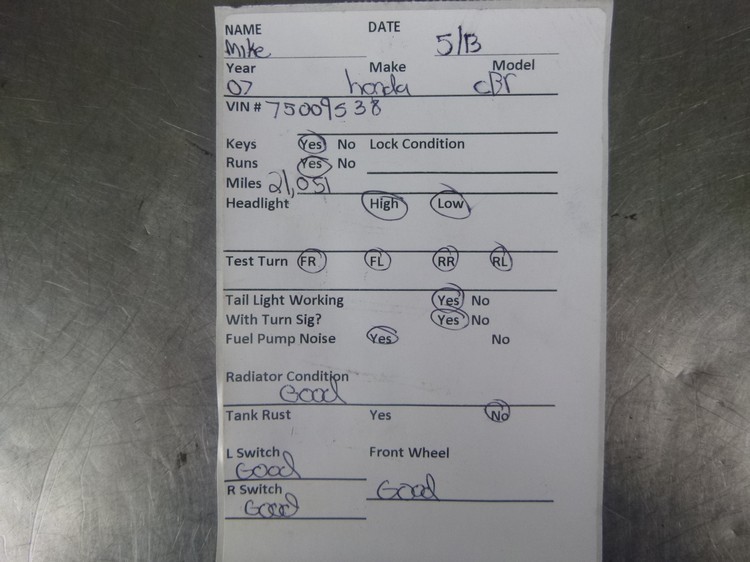 NAME DATE
Mike 5/13
Year Make Model
07 honda cBr
VIN # 75009538
Keys Yes No Lock Condition
Runs Yes No
Miles 21,051
Headlight High Low
Test Turn FR FL RR RL
Tail Light Working Yes No
With Turn Sig? Yes No
Fuel Pump Noise Yes No
Radiator Condition
Good
Tank Rust Yes No
L Switch Front Wheel
Good
R Switch Good
Good